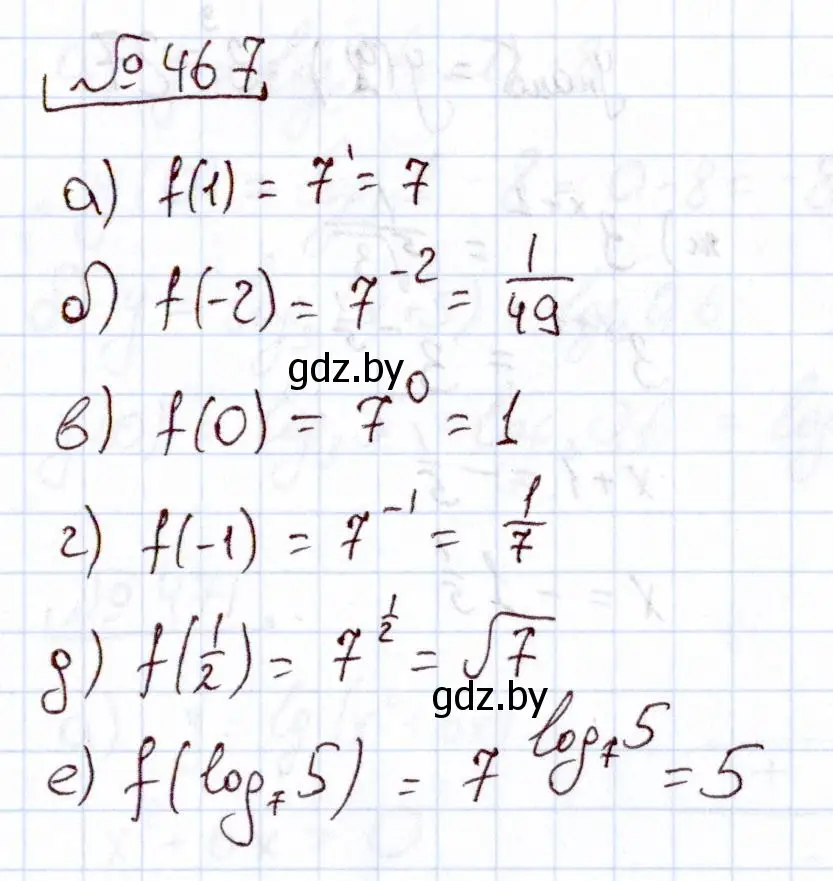 № 467
а) f(1) = 7¹ = 7
б) f(-2) = 7⁻² = 1/49
gdz.by
в) f(0) = 7⁰ = 1
г) f(-1) = 7⁻¹ = 1/7
д) f(1/2) = 7^(1/2) = √7
gdz.by
е) f(log₇5) = 7^(log₇5) = 5